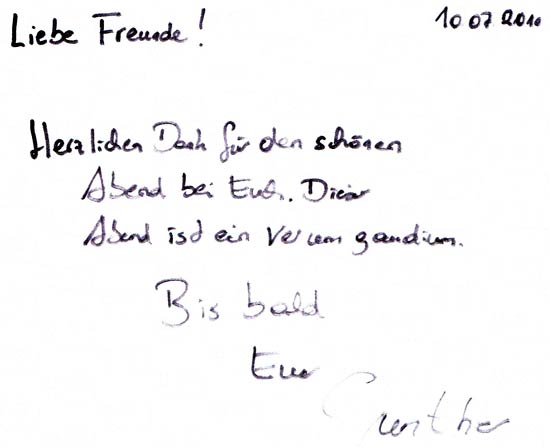 Liebe Freunde! 10 07 2010
Herzlichen Dank für den schönen
Abend bei Euch. Dieser
Abend ist ein verum gaudium.
Bis bald
Euer
Gunther